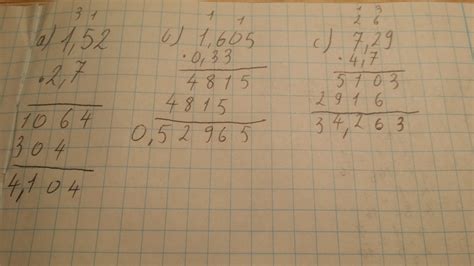 3 1
a) 1,52
·2,7
1064
304
4,104
1 1
b) 1,605
·0,33
4815
4815
0,52965
1 3
2 6
c) 7,29
·4,7
5103
2916
34,263